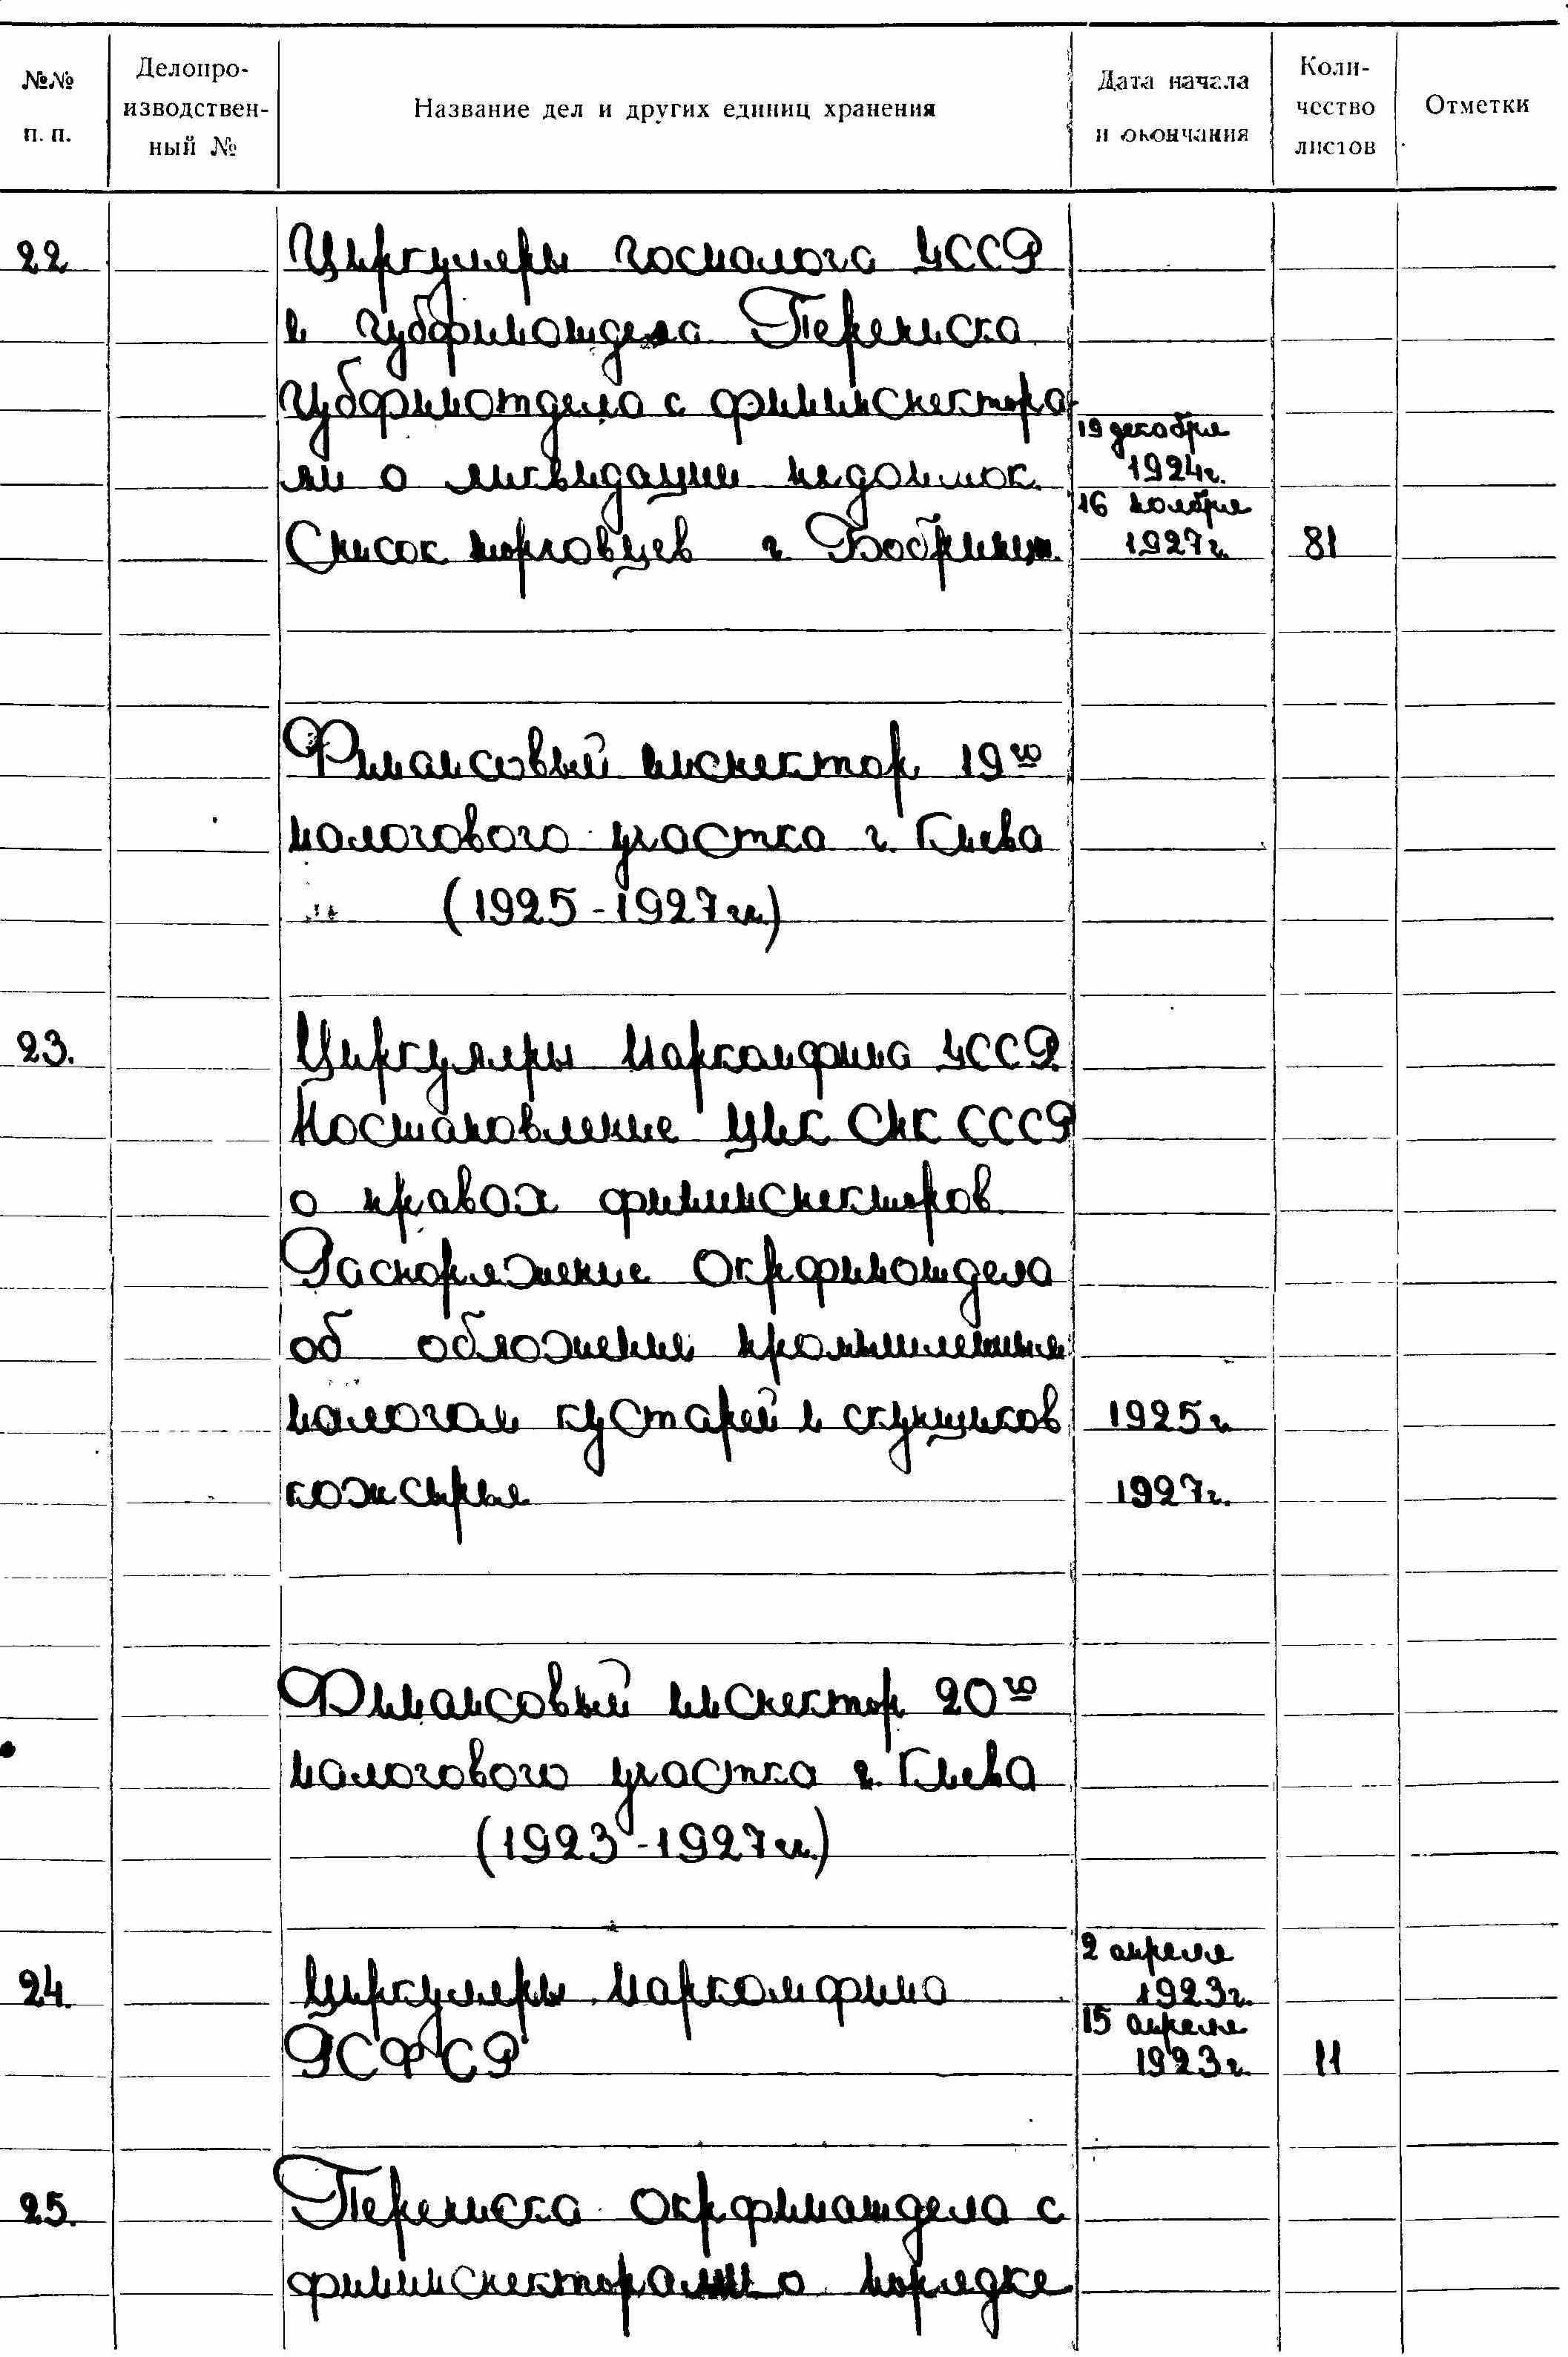 №№ п. п.
Делопро-
изводствен-
ный №
Название дел и других единиц хранения
Дата начала
и окончания
Коли-
чество
листов
Отметки
22
Циркуляры госналога УССР
и губфинотдела Переписка
губфинотдела с фининспектора-
ми о ликвидации недоимок.
19 декабря
1924г.
16 ноября
Список торговцев г. Бобринец. 1927г. 81
Финансовый инспектор 19го
налогового участка г. Киева
(1925-1927гг.)
23. Циркуляры Наркомфина УССР.
Постановление ЦИК СНК СССР
о правах фининспекторов
Распоряжение Окрфинотдела
об обложение промышленным
налогом кустарей и скупщиков 1925г
кожсырья 1927г.
Финансовый инспектор 20го
налогового участка г. Киева
(1923-1927гг.)
2 апреля
24. Циркуляры Наркомфина 1923г.
15 апреля
РСФСР 1923г. 11
25. Переписка Окрфинотдела с
фининспекторами о порядке